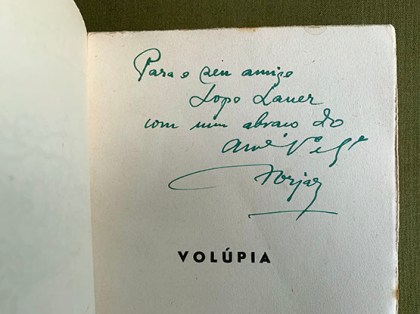 Para o seu amigo
Lopo Lauer
com um abraço do
Forjaz
VOLÚPIA